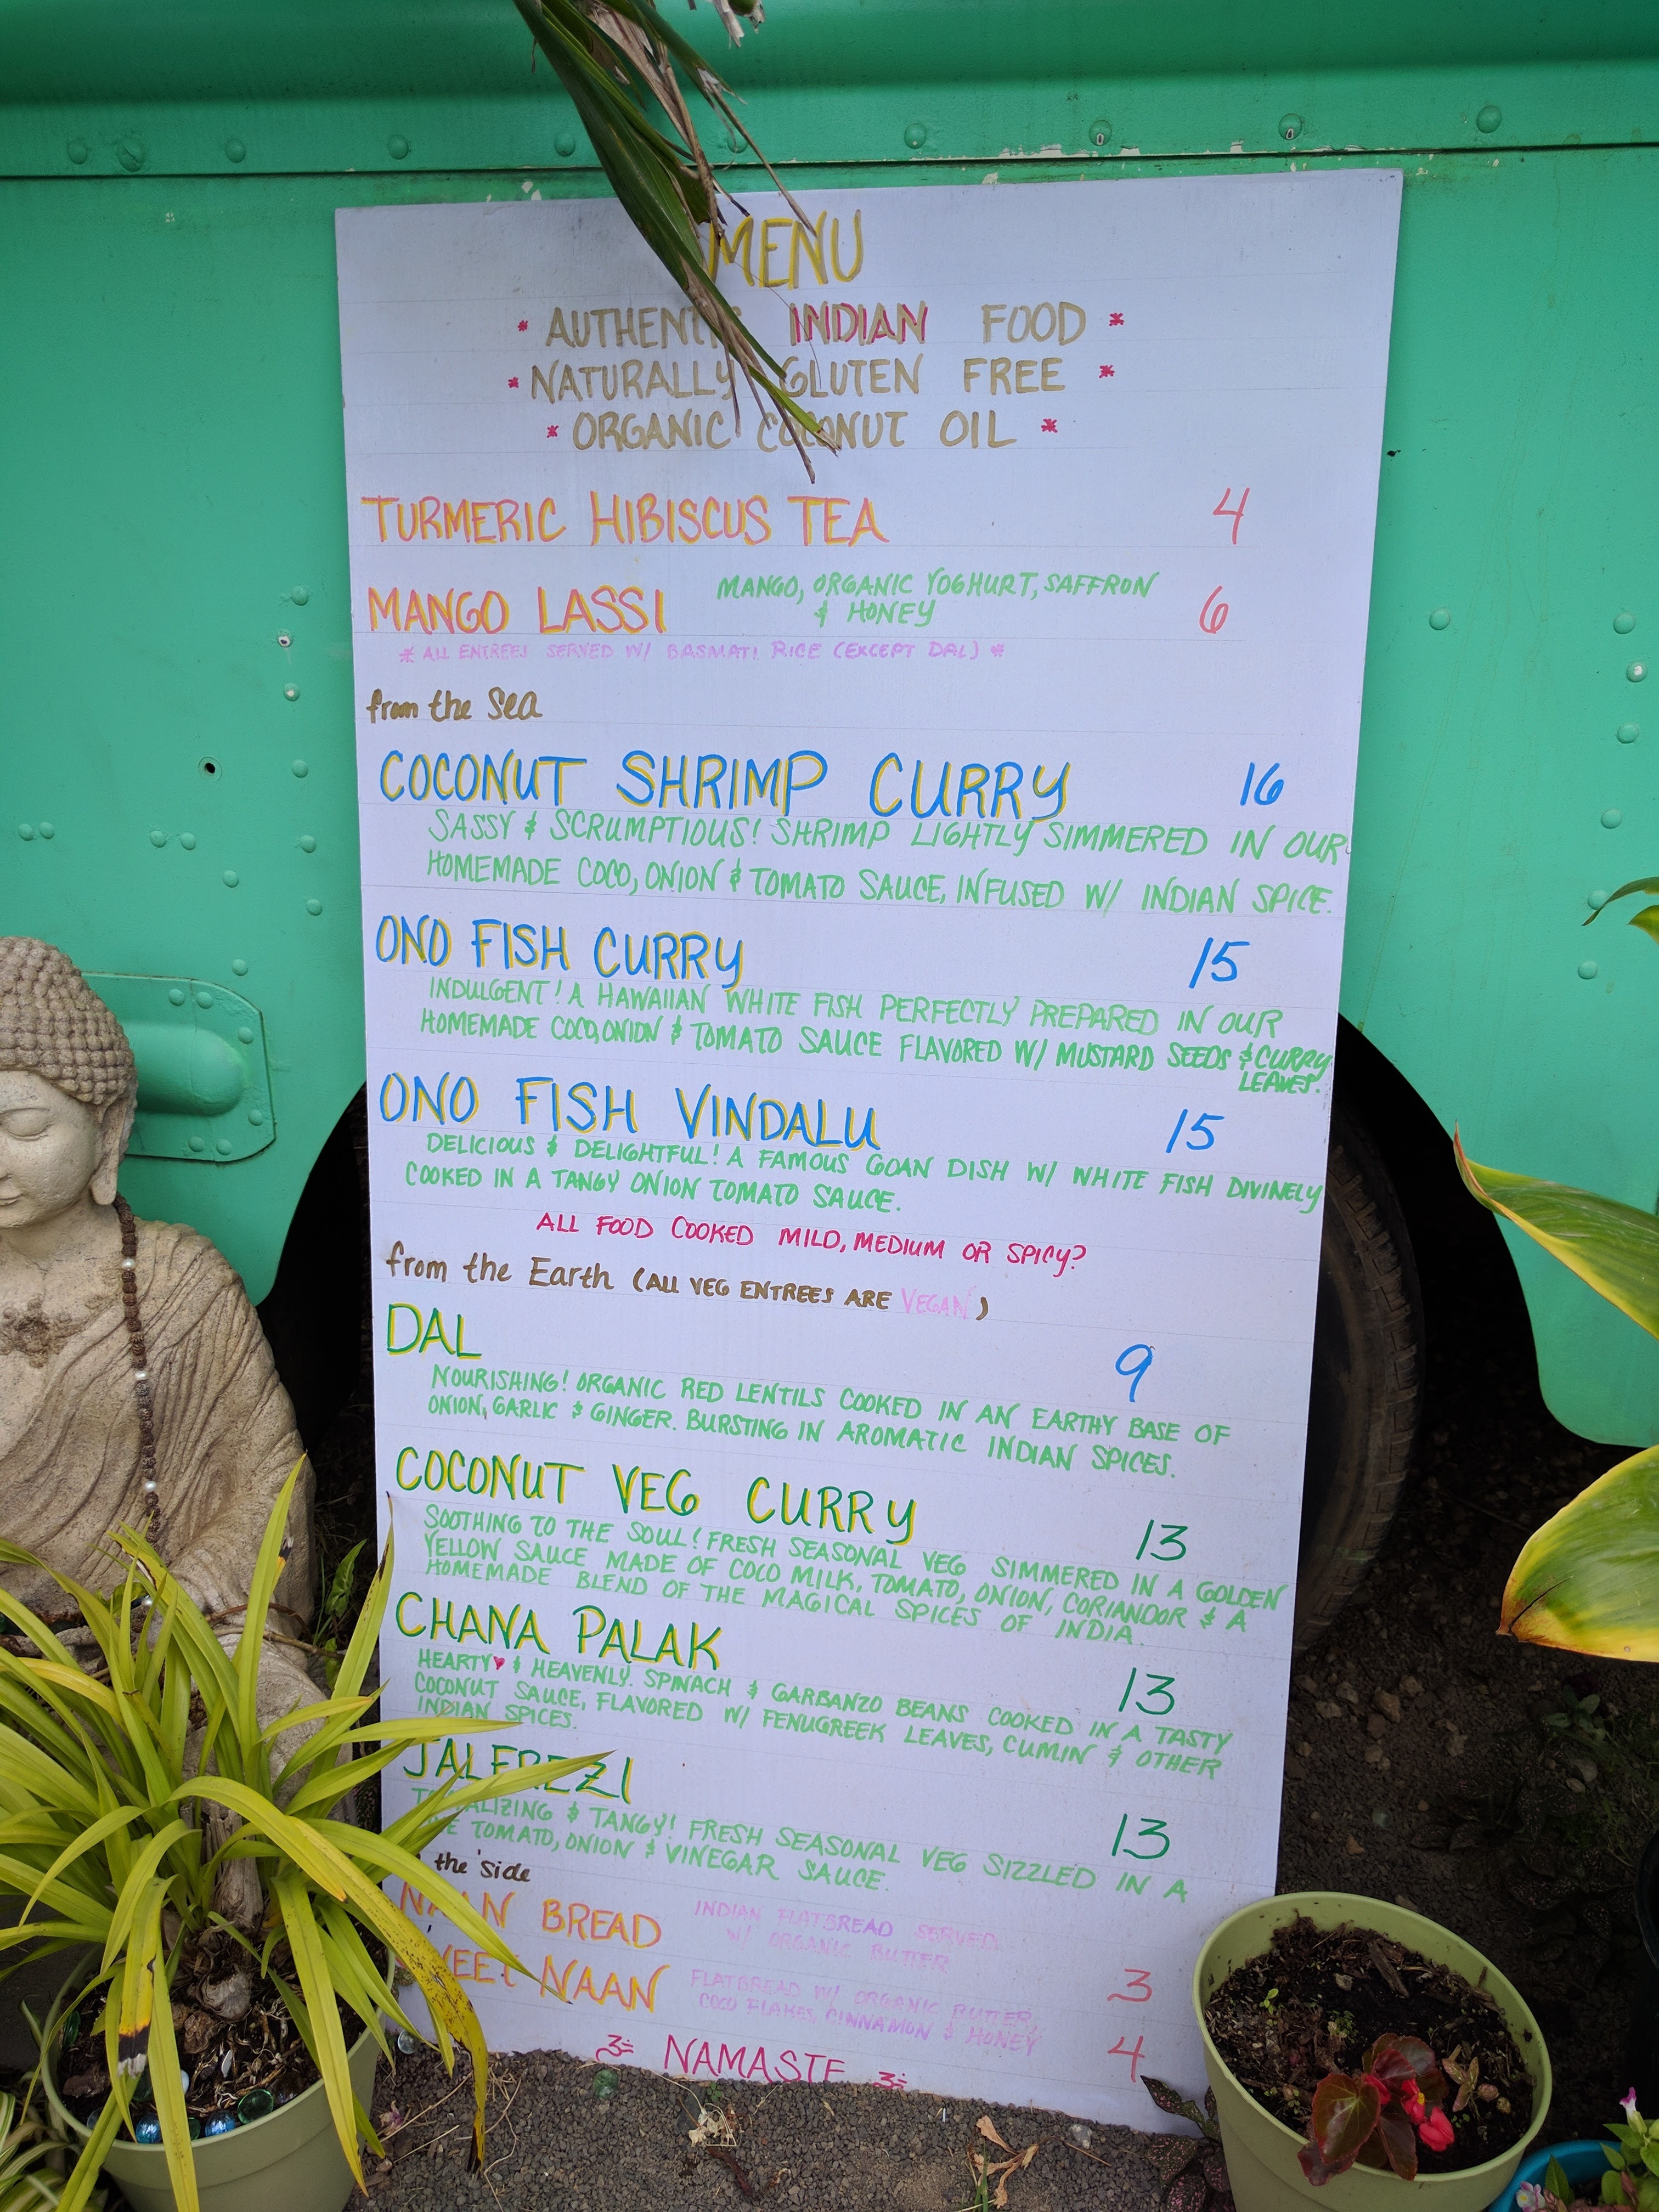 MENU
* AUTHENTIC INDIAN FOOD *
* NATURALLY GLUTEN FREE *
* ORGANIC COCONUT OIL *
TURMERIC HIBISCUS TEA 4
MANGO LASSI MANGO, ORGANIC YOGHURT, SAFFRON
& HONEY 6
* ALL ENTREES SERVED W/ BASMATI RICE (EXCEPT DAL) *
from the Sea
COCONUT SHRIMP CURRY 16
SASSY & SCRUMPTIOUS! SHRIMP LIGHTLY SIMMERED IN OUR
HOMEMADE COCO, ONION & TOMATO SAUCE, INFUSED W/ INDIAN SPICE.
ONO FISH CURRY 15
INDULGENT! A HAWAIIAN WHITE FISH PERFECTLY PREPARED IN OUR
HOMEMADE COCO, ONION & TOMATO SAUCE FLAVORED W/ MUSTARD SEEDS & CURRY
LEAVES.
ONO FISH VINDALU 15
DELICIOUS & DELIGHTFUL! A FAMOUS GOAN DISH W/ WHITE FISH DIVINELY
COOKED IN A TANGY ONION TOMATO SAUCE.
ALL FOOD COOKED MILD, MEDIUM OR SPICY?
from the Earth (ALL VEG ENTREES ARE VEGAN)
DAL 9
NOURISHING! ORGANIC RED LENTILS COOKED IN AN EARTHY BASE OF
ONION, GARLIC & GINGER. BURSTING IN AROMATIC INDIAN SPICES.
COCONUT VEG CURRY 13
SOOTHING TO THE SOUL! FRESH SEASONAL VEG SIMMERED IN A GOLDEN
YELLOW SAUCE MADE OF COCO MILK, TOMATO, ONION, CORIANDOR & A
HOMEMADE BLEND OF THE MAGICAL SPICES OF INDIA.
CHANA PALAK 13
HEARTY ♥ & HEAVENLY. SPINACH & GARBANZO BEANS COOKED IN A TASTY
COCONUT SAUCE, FLAVORED W/ FENUGREEK LEAVES, CUMIN & OTHER
INDIAN SPICES.
JALFREZI 13
& TANGY! FRESH SEASONAL VEG SIZZLED IN A
TOMATO, ONION & VINEGAR SAUCE.
the side
NAAN BREAD INDIAN FLATBREAD SERVED
W/ ORGANIC BUTTER 3
SWEET NAAN FLATBREAD W/ ORGANIC BUTTER,
COCO FLAKES, CINNAMON & HONEY 4
NAMASTE